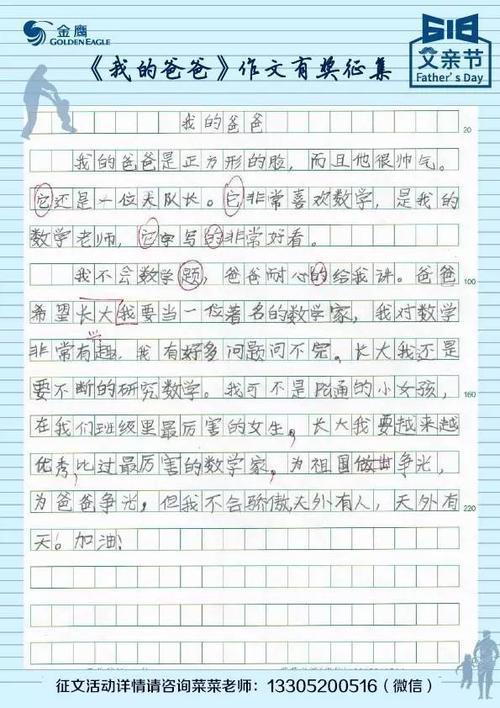 金鹰
GOLDEN EAGLE
618
父亲节
Father's Day
《我的爸爸》作文有奖征集
我的爸爸
20
我的爸爸是正方形的脸，而且他很帅气。
它还是一位大队长。它非常喜欢数学，是我的
数学老师，它字写的非常好看。
我不会数学题，爸爸耐心的给我讲。爸爸
100
希望长大我要当一位著名的数学家，我对数学
兴
非常有趣，我有好多问题问不完。长大我还是
要不断的研究数学。我可不是普通的小女孩，
160
在我们班级里最厉害的女生，长大我要越来越
优秀，比过最厉害的数学家，为祖国做出争光，
为爸爸争光，但我不会骄傲天外有人，天外有
220
天！。加油！
征文活动详情请咨询菜菜老师：13305200516（微信）